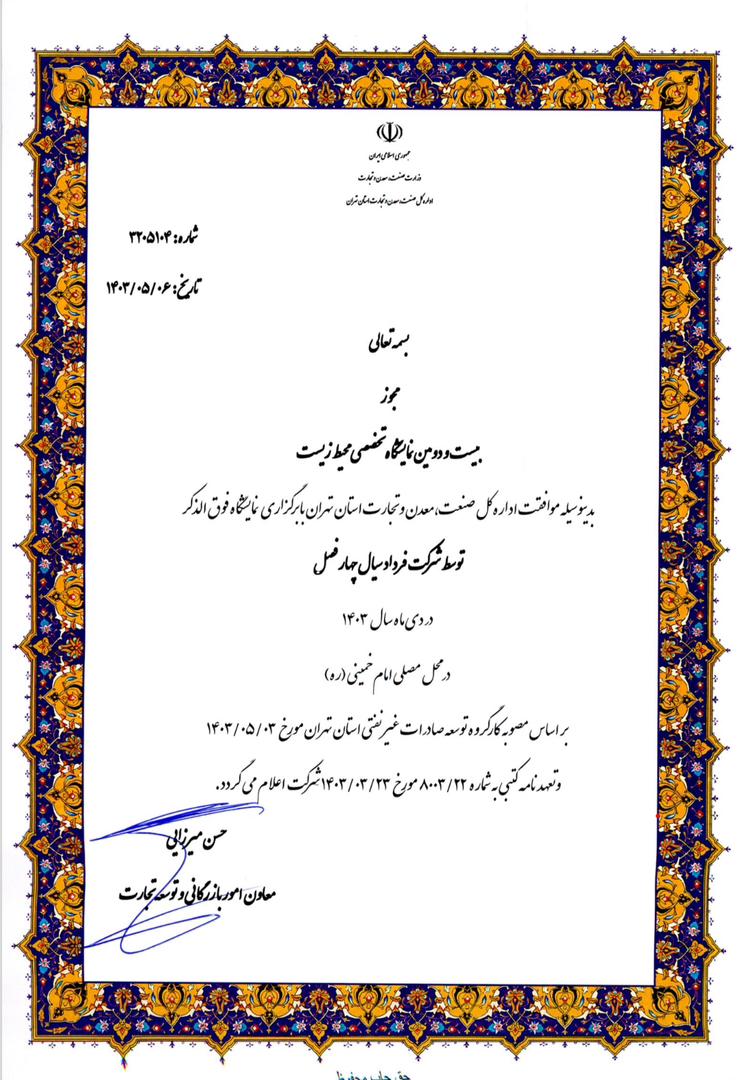 جمهوری اسلامی ایران
وزارت صنعت، معدن و تجارت
اداره کل صنعت، معدن و تجارت استان تهران
شماره: ۳۲۰۵۱۰۴
تاریخ: ۱۴۰۳/۰۵/۰۶
بسمه تعالی
مجوز
بیست و دومین نمایشگاه تخصصی محیط زیست
بدینوسیله موافقت اداره کل صنعت، معدن و تجارت استان تهران با برگزاری نمایشگاه فوق الذکر
توسط شرکت فرداد سیال چهار فصل
در دی ماه سال ۱۴۰۳
در محل مصلی امام خمینی (ره)
بر اساس مصوبه کارگروه توسعه صادرات غیر نفتی استان تهران مورخ ۱۴۰۳/۰۵/۰۳
و تعهد نامه کتبی به شماره ۸۰۰۳/۲۲ مورخ ۱۴۰۳/۰۳/۲۳ شرکت اعلام می گردد.
حسن میرزائی
معاون امور بازرگانی و توسعه تجارت